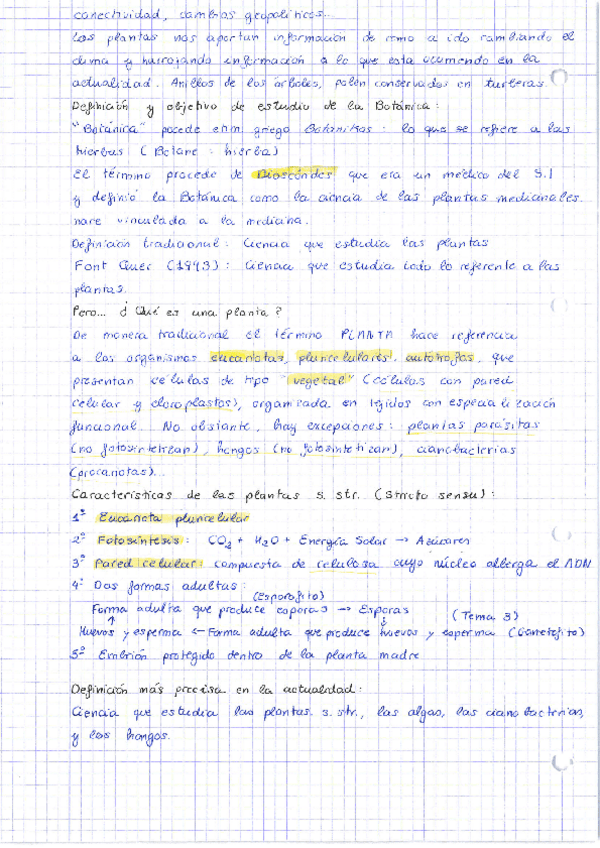 conectividad, cambios geopolíticos...
Las plantas nos aportan información de como a ido cambiando el
clima y ... información a lo que esta ocurriendo en la
actualidad. Anillos de los árboles, polén conservados en turberas.
Definición y objetivo de estudio de la Botánica:
"Botánica" pocede etim griego Botanikos: lo que se refiere a las
hierbas (Botane: hierba)
El término procede de Dioscórides que era un médico del S.I
y definió la Botánica como la ciencia de las plantas medicinales.
nace vinculada a la medicina.
Definición tradicional: Ciencia que estudia las plantas
Font Quer (1993): Ciencia que estudia todo lo referente a las
plantas.
Pero... ¿Qué es una planta?
De manera tradicional el término PLANTA hace referencia
a los organismos eucariotas, pluricelulares, autótrofos, que
presentan células de tipo "vegetal" (células con pared
celular y cloroplastos), organizada en tejidos con especialización
funcional. No obstante, hay excepciones: plantas parásitas
(no fotosintetizan), hongos (no fotosintetizan), cianobacterias
(procariotas)...
Características de las plantas s. str. (Stricto sensu):
1º Eucariota pluricelular
2º Fotosíntesis: CO2 + H2O + Energía Solar → Azúcares
3º Pared celular: compuesta de celulosa cuyo núcleo alberga el ADN
4º Dos formas adultas:
(Esporofito)
Forma adulta que produce esporas → Esporas (Tema 3)
↑ ↓
Huevos y esperma ← Forma adulta que produce huevos y esperma (Gametofito)
5º Embrión protegido dentro de la planta madre
Definición más precisa en la actualidad:
Ciencia que estudia las plantas. s. str., las algas, las cianobacterias,
y los hongos.